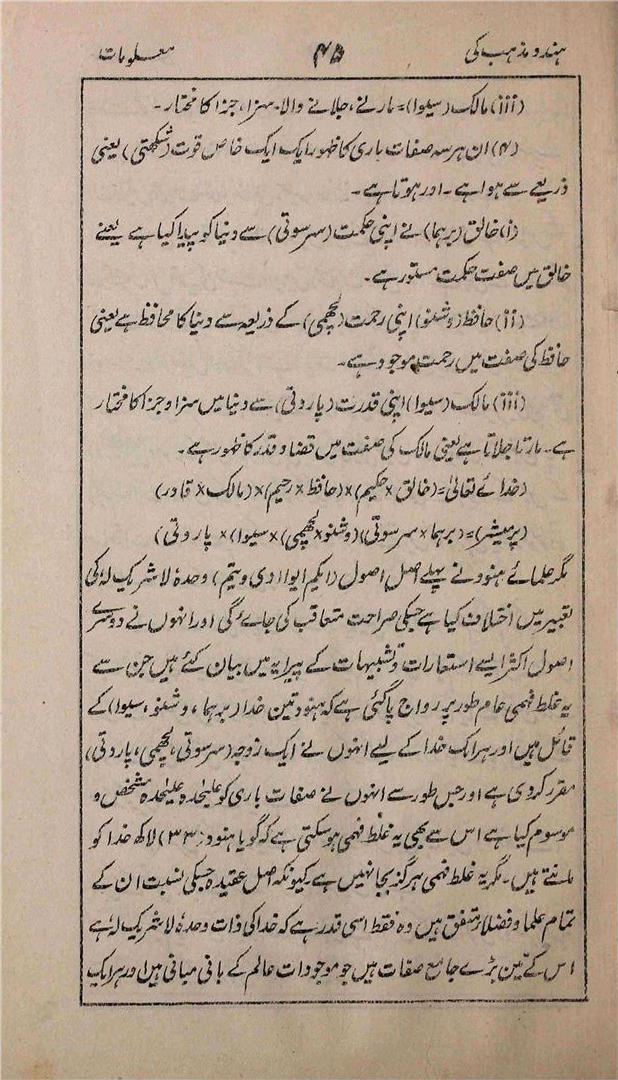 ہندو مذہب کی ۴۵ معلومات
(iii) مالک (سیوا)= مارنے، جلانے والا۔ سزا، جزا کا مختار۔
(۴) ان ہر سہ صفات باری کا ظہور ایک ایک خاص قوت (شکھتی) یعنی
ذریعے سے ہوا ہے۔ اور ہوتا ہے۔
(i) خالق (برہما) نے اپنی حکمت (سرسوتی) سے دنیا کو پیدا کیا ہے یعنے
خالق میں صفت حکمت مستور ہے۔
(ii) حافظ (وشنو) اپنی رحمت (لچھمی) کے ذریعہ سے دنیا کا محافظ ہے یعنی
حافظ کی صفت میں رحمت موجود ہے۔
(iii) مالک (سیوا) اپنی قدرت (پاروتی) سے دنیا میں سزا و جزا کا مختار
ہے۔ مارتا جلاتا ہے یعنی مالک کی صفت میں قضا و قدر کا ظہور ہے۔
(خدائے تعالیٰ=(خالق × حکیم)×(حافظ × رحیم)×(مالک× قادر)
(پرمیشر)=(برہما × سرسوتی)(وشنو×لچھمی)×سیوا)× پاروتی)
مگر علمائے ہنود نے پہلے اصل اصول (ایکم ایوا ادی ویتیم) وحدہٗ لاشریک لہٗ کی
تعبیر میں اختلاف کیا ہے جسکی صراحت متعاقب کی جائے گی اور انہوں نے دوسرے
اصول اکثر ایسے استعارات و تشبیہات کے پیرایہ میں بیان کئے ہیں جن سے
یہ غلط فہمی عام طور پر رواج پا گئی ہے کہ ہنود تین خدا (برہما، وشنو، سیوا) کے
قائل ہیں اور ہر ایک خدا کے لیے انہوں نے ایک زوجہ (سرسوتی، لچھمی، پاروتی)
مقرر کر دی ہے اور جس طور سے انہوں نے صفات باری کو علیٰحدہ علیٰحدہ مشخص و
موسوم کیا ہے اس سے بھی یہ غلط فہمی ہو سکتی ہے کہ گویا ہنود (۳۳) لاکھ خدا کو
مانتے ہیں۔ مگر یہ غلط فہمی ہرگز بجا نہیں ہے۔ کیونکہ اصل عقیدہ جسکی نسبت ان کے
تمام علما و فضلا متفق ہیں وہ فقط اسی قدر ہے کہ خدا کی ذات وحدہٗ لاشریک لہٗ ہے
اس کے تین بڑے جامع صفات ہیں جو موجودات عالم کے بانی مبانی ہیں اور ہر ایک